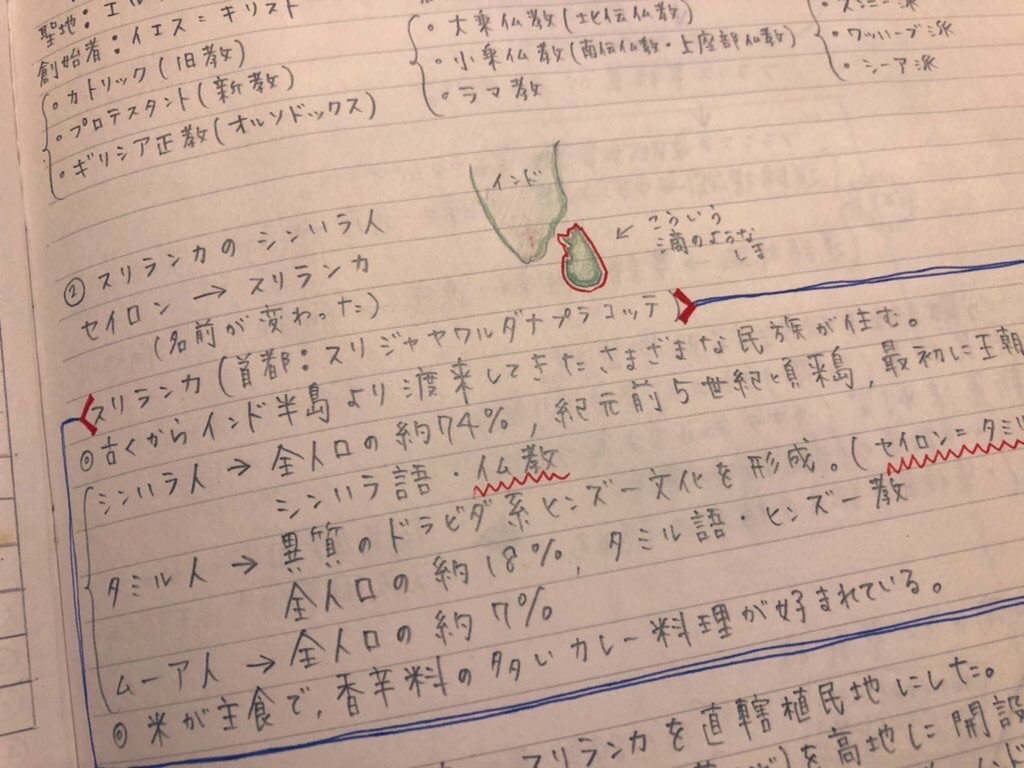 聖地：エル
創始者：イエス＝キリスト
・カトリック(旧教)
・プロテスタント(新教)
・ギリシア正教(オルソドックス)
・大乗仏教(北伝仏教)
・小乗仏教(南伝仏教・上座部仏教)
・ラマ教
・スンニー派
・ワッハーブ派
・シーア派
インド
← こういう
滴のような
しま
② スリランカの シンハラ人
セイロン → スリランカ
(名前が変わった)
スリランカ(首都：スリジャヤワルダナプラコッテ)
◎古くからインド半島より渡来してきたさまざまな民族が住む。
シンハラ人 → 全人口の約74%, 紀元前5世紀頃来島, 最初に王朝
シンハラ語・仏教
タミル人 → 異質のドラビダ系ヒンズー文化を形成。(セイロン＝タミル
全人口の約18%, タミル語・ヒンズー教
ムーア人 → 全人口の約7%
◎米が主食で, 香辛料の多いカレー料理が好まれている。
スリランカを直轄植民地にした。
を高地に開設